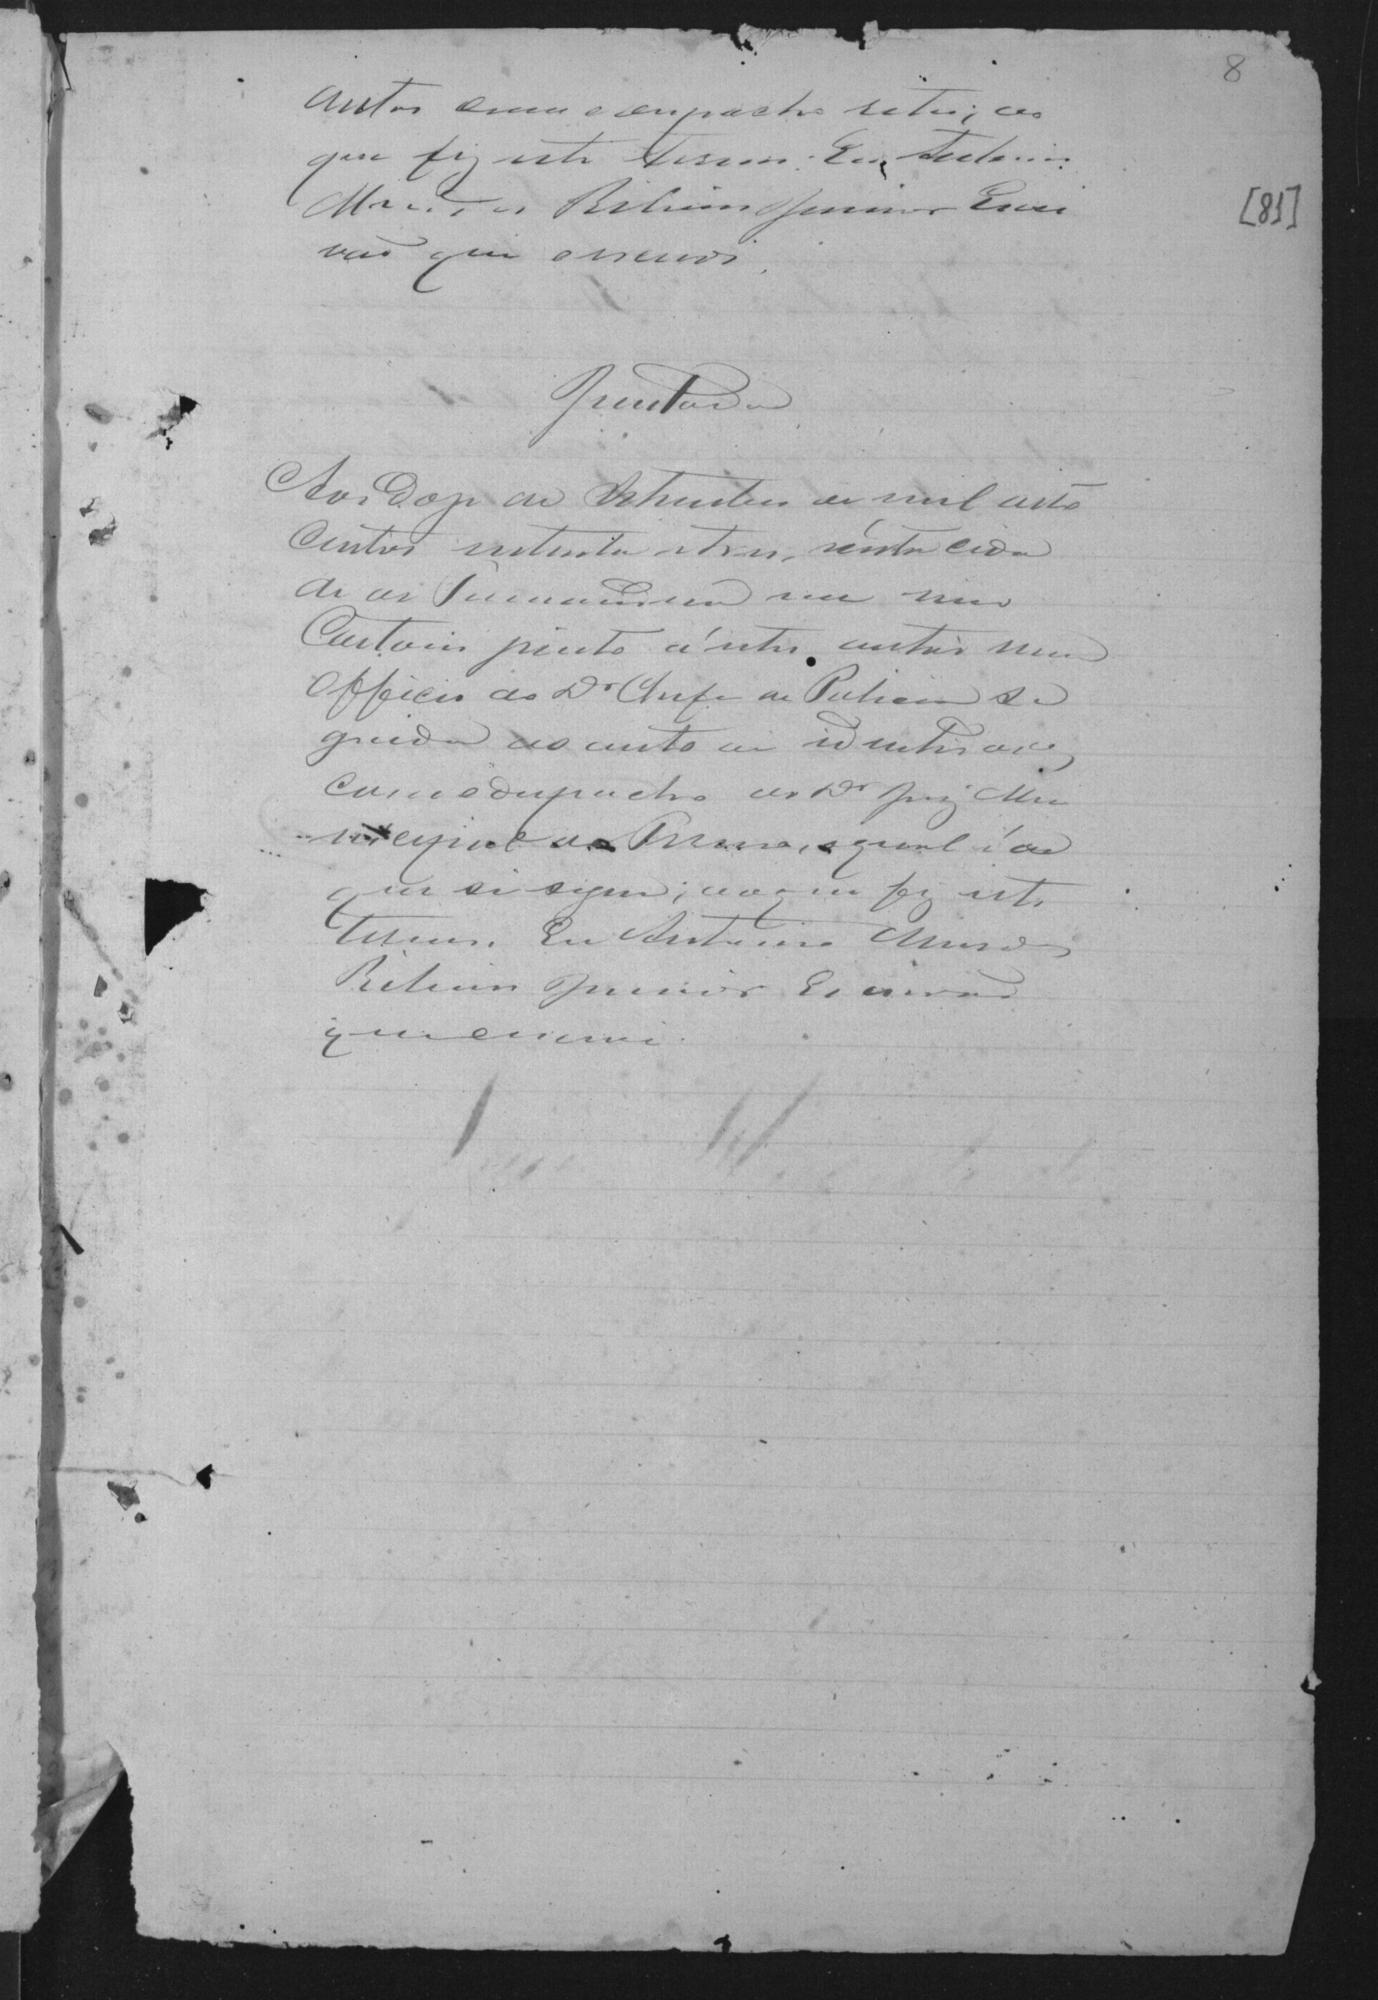 8
autos com o despacho retro; do
que fiz este termo. Eu, Antonio
Mendes Ribeiro Junior Escri
vão que escrevi.
[81]
Juntada
Aos doze de Setembro de mil oito
centos setenta e tres, n'esta cida
de de em meu
Cartorio junto á estes autos um
Officio do Dr Chefe de Policia se
guido do auto de
com o despacho do Dr Juiz Mu
nicipal do Termo, o qual é do
que se segue; do que fiz este
termo. Eu Antonio Mendes
Ribeiro Junior Escrivão
que escrevi.